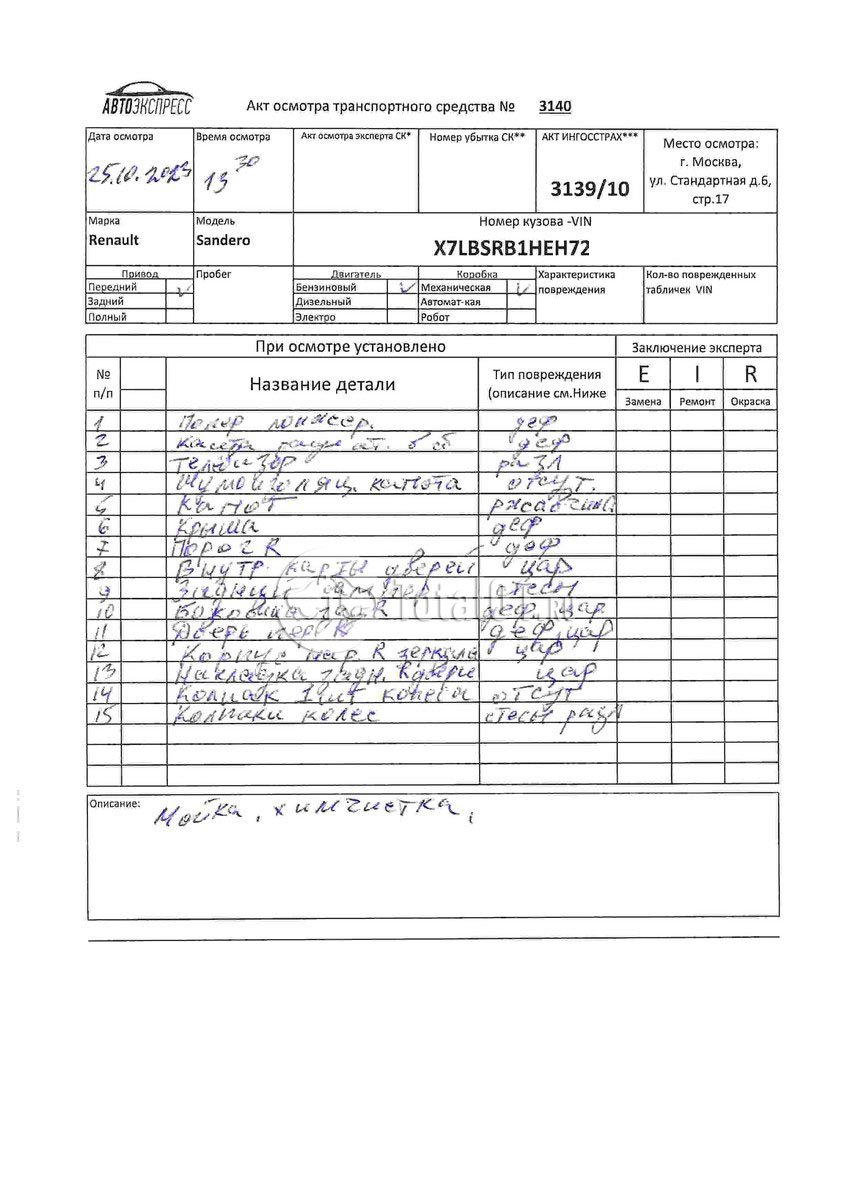 АВТОЭКСПРЕСС
Акт осмотра транспортного средства № 3140
Дата осмотра Время осмотра Акт осмотра эксперта СК* Номер убытка СК** АКТ ИНГОССТРАХ*** Место осмотра:
25.10.2023 13 30 3139/10 г. Москва,
ул. Стандартная д.6,
стр.17
Марка Модель Номер кузова -VIN
Renault Sandero X7LBSRB1HEH72
Привод Пробег Двигатель Коробка Характеристика повреждения Кол-во поврежденных табличек VIN
Передний Бензиновый Механическая
Задний Дизельный Автомат-кая
Полный Электро Робот
При осмотре установлено Заключение эксперта
№ п/п Название детали Тип повреждения (описание см.Ниже E I R
Замена Ремонт Окраска
1 деф
2 деф
3 Телевизор разл
4 Шумоизоляц. капота отсут.
5 Капот
6 Крыша деф
7 Порог R деф
8 Внутр. карты дверей цар
9 Задний бампер стесы
10 Боковина зад R деф, цар
11 Дверь пер R деф, цар
12 Корпус нар. R зеркала цар
13 Накладка задн. R двери цар
14 Колпак 1 шт колеса отсут
15 Колпаки колес стесы разл
Описание: Мойка, химчистка,
Total01.ru